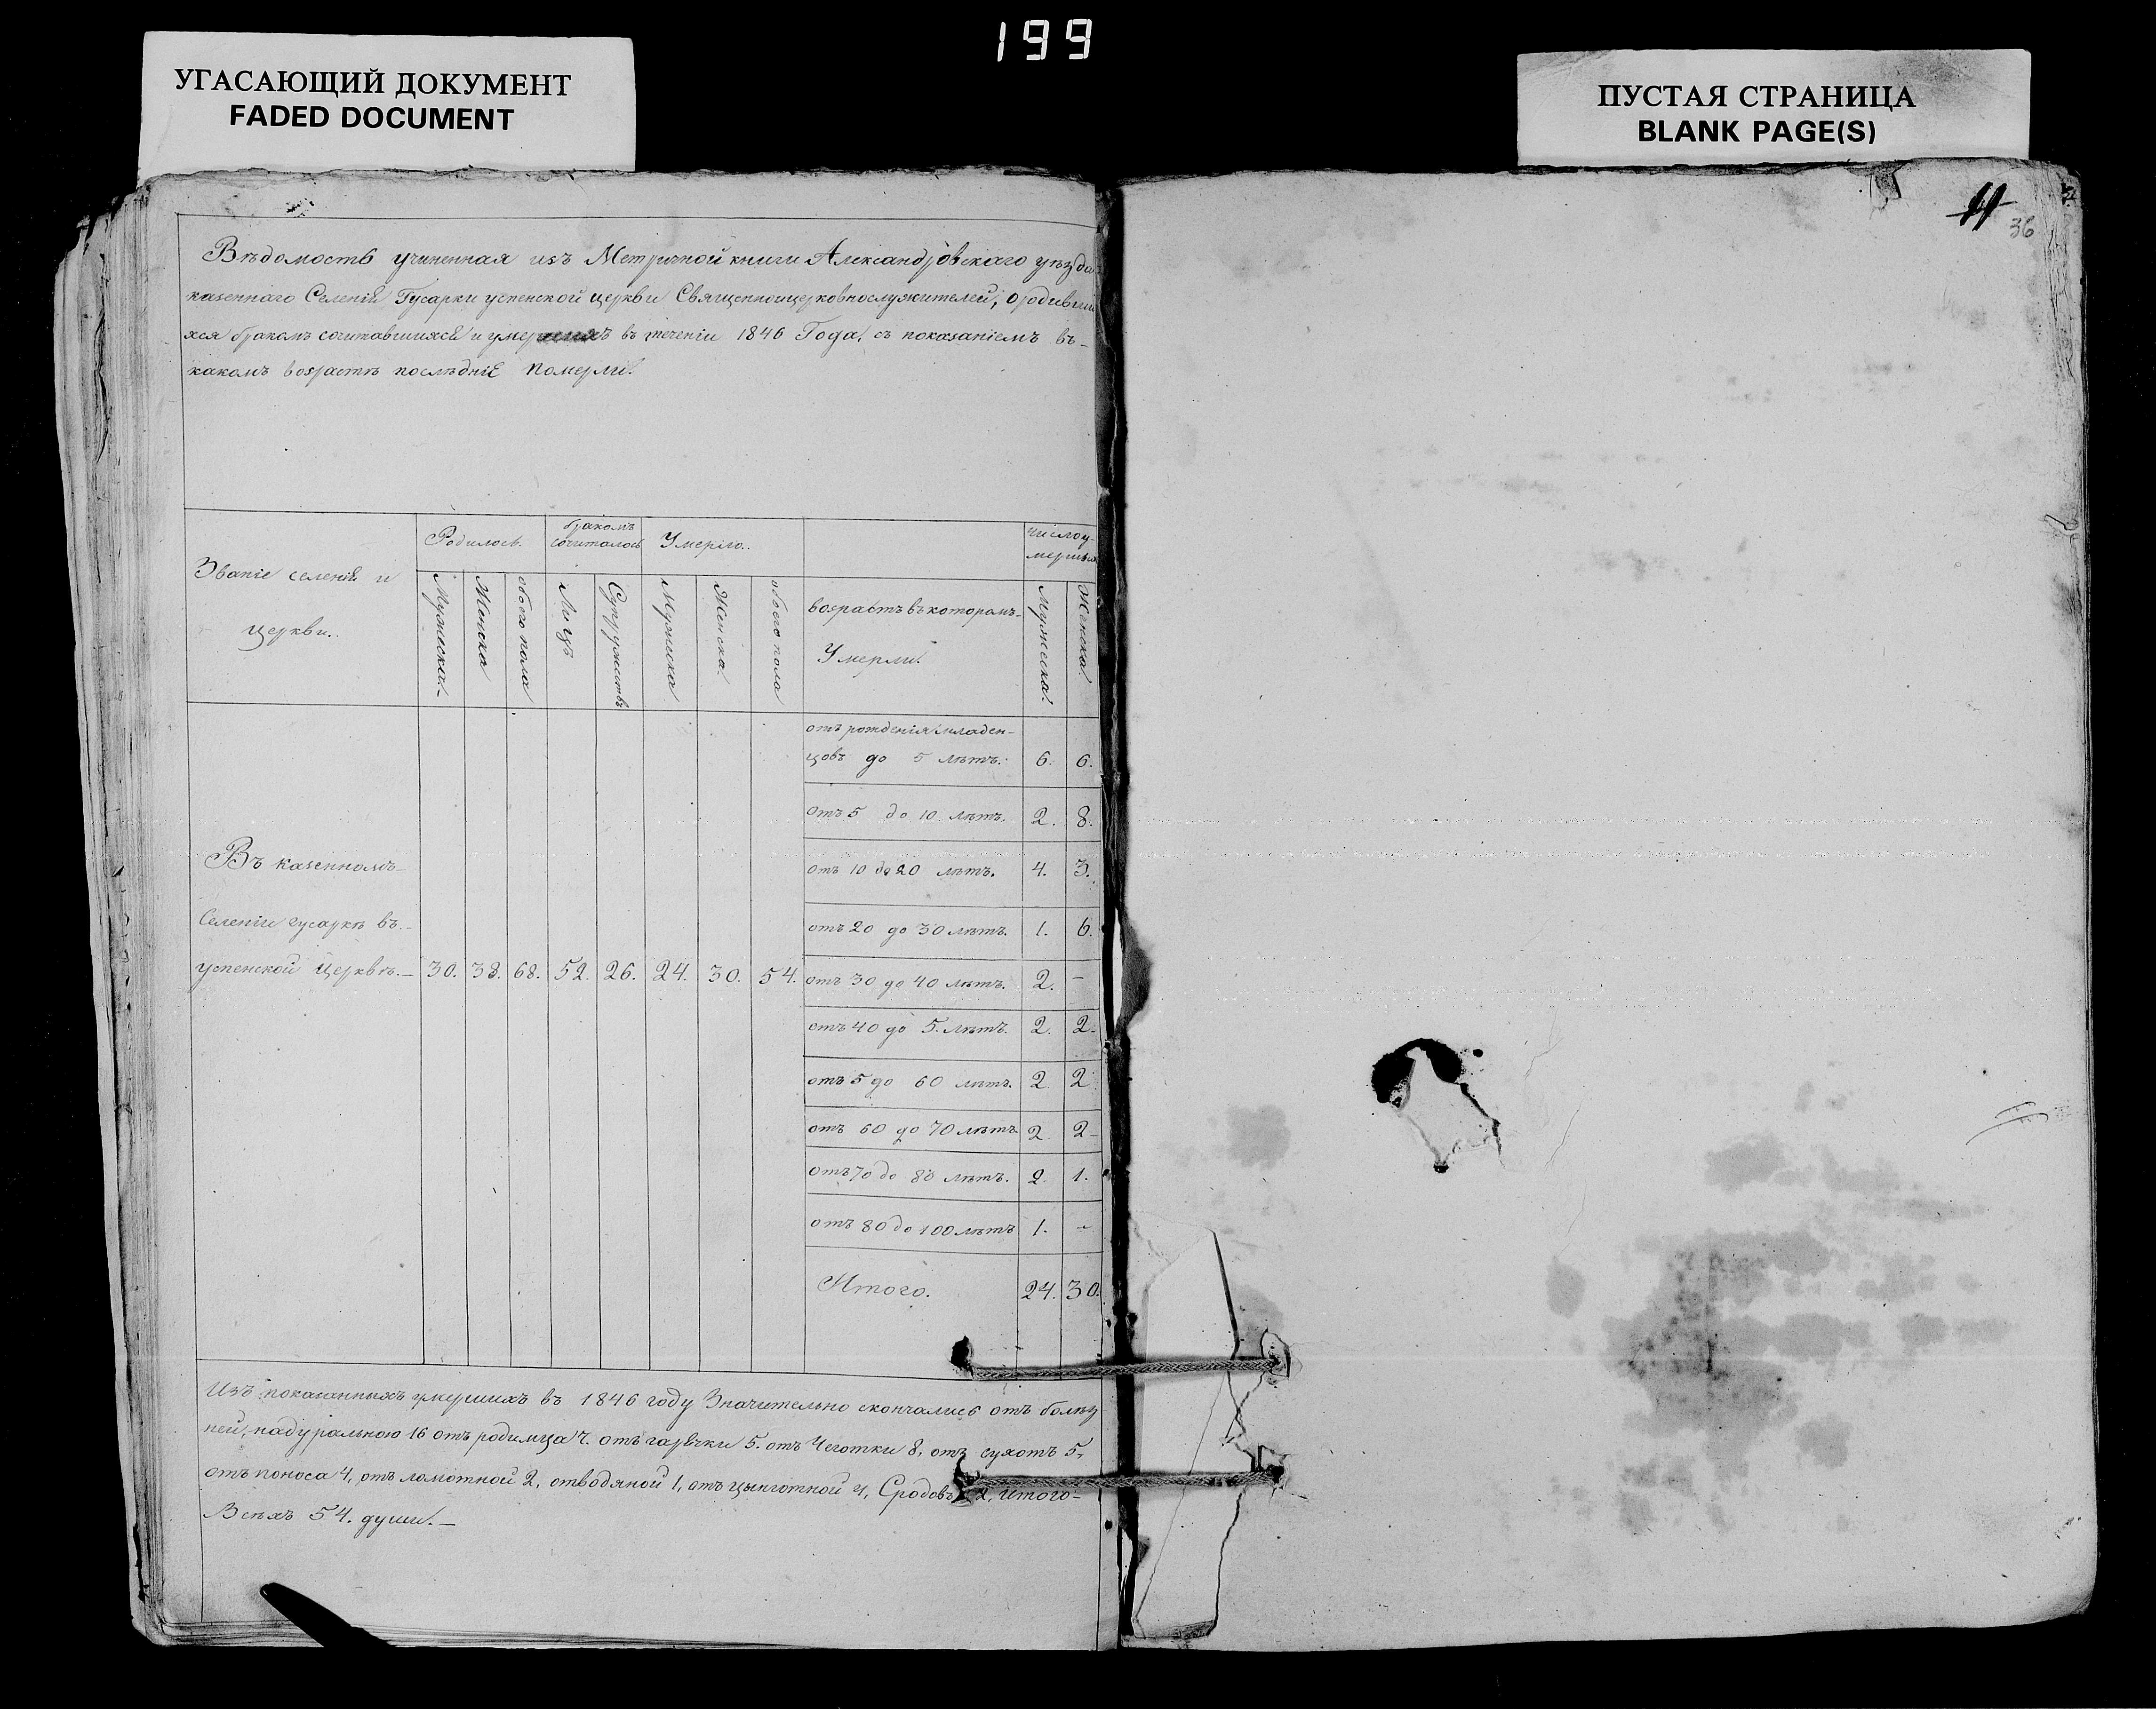 199
УГАСАЮЩИЙ ДОКУМЕНТ
FADED DOCUMENT
ПУСТАЯ СТРАНИЦА
BLANK PAGE(S)
11
36
Вѣдомость учиненная изъ Метричной книги Александровскаго уѣзда
казеннаго Селенія Гусарки успенской церкви Священноицерковнослужителей, ородивши
хся бракомъ сочитавшихся и умершихъ въ теченіи 1846 Года, съ показаніемъ въ-
какомъ возрастѣ послѣдніе померли.
Званіе селенія и
церкви.
Родилось.
бракомъ
сочиталось
Умерло.
Число у-
мершихъ
Мужеска.
Женска
обоего пола
Лицъ
Супружествъ
Мужеска
Женска.
обоего пола
возрастъ въ которомъ-
Умерли.
Мужеска.
Женска.
отъ рожденія младен-
цовъ до 5 лѣтъ. 6. 6.
отъ 5 до 10 лѣтъ. 2. 8.
отъ 10 до 20 лѣтъ. 4. 3.
отъ 20 до 30 лѣтъ. 1. 6.
Въ казенномъ-
Селеніи гусаркѣ въ-
успенской Церквѣ.- 30. 38. 68. 52. 26. 24. 30. 54.
отъ 30 до 40 лѣтъ. 2. -
отъ 40 до 5. лѣтъ. 2. 2-
отъ 5 до 60 лѣтъ. 2. 2
отъ 60 до 70 лѣтъ 2. 2-
отъ 70 до 80 лѣтъ. 2. 1.
отъ 80 до 100 лѣтъ 1. -
Итого. 24. 30.
Изъ показанныхъ умершихъ въ 1846 году Значительно скончались отъ болѣз
ней, надуральною 16 отъ родимца 7. отъ гарячки 5. отъ Чеготки 8, отъ сухотъ 5,
отъ поноса 4, отъ ломотной 2, отводяной 1, отъ цынготной 4, Сродовъ 2, итого-
Всѣхъ 54. души.-